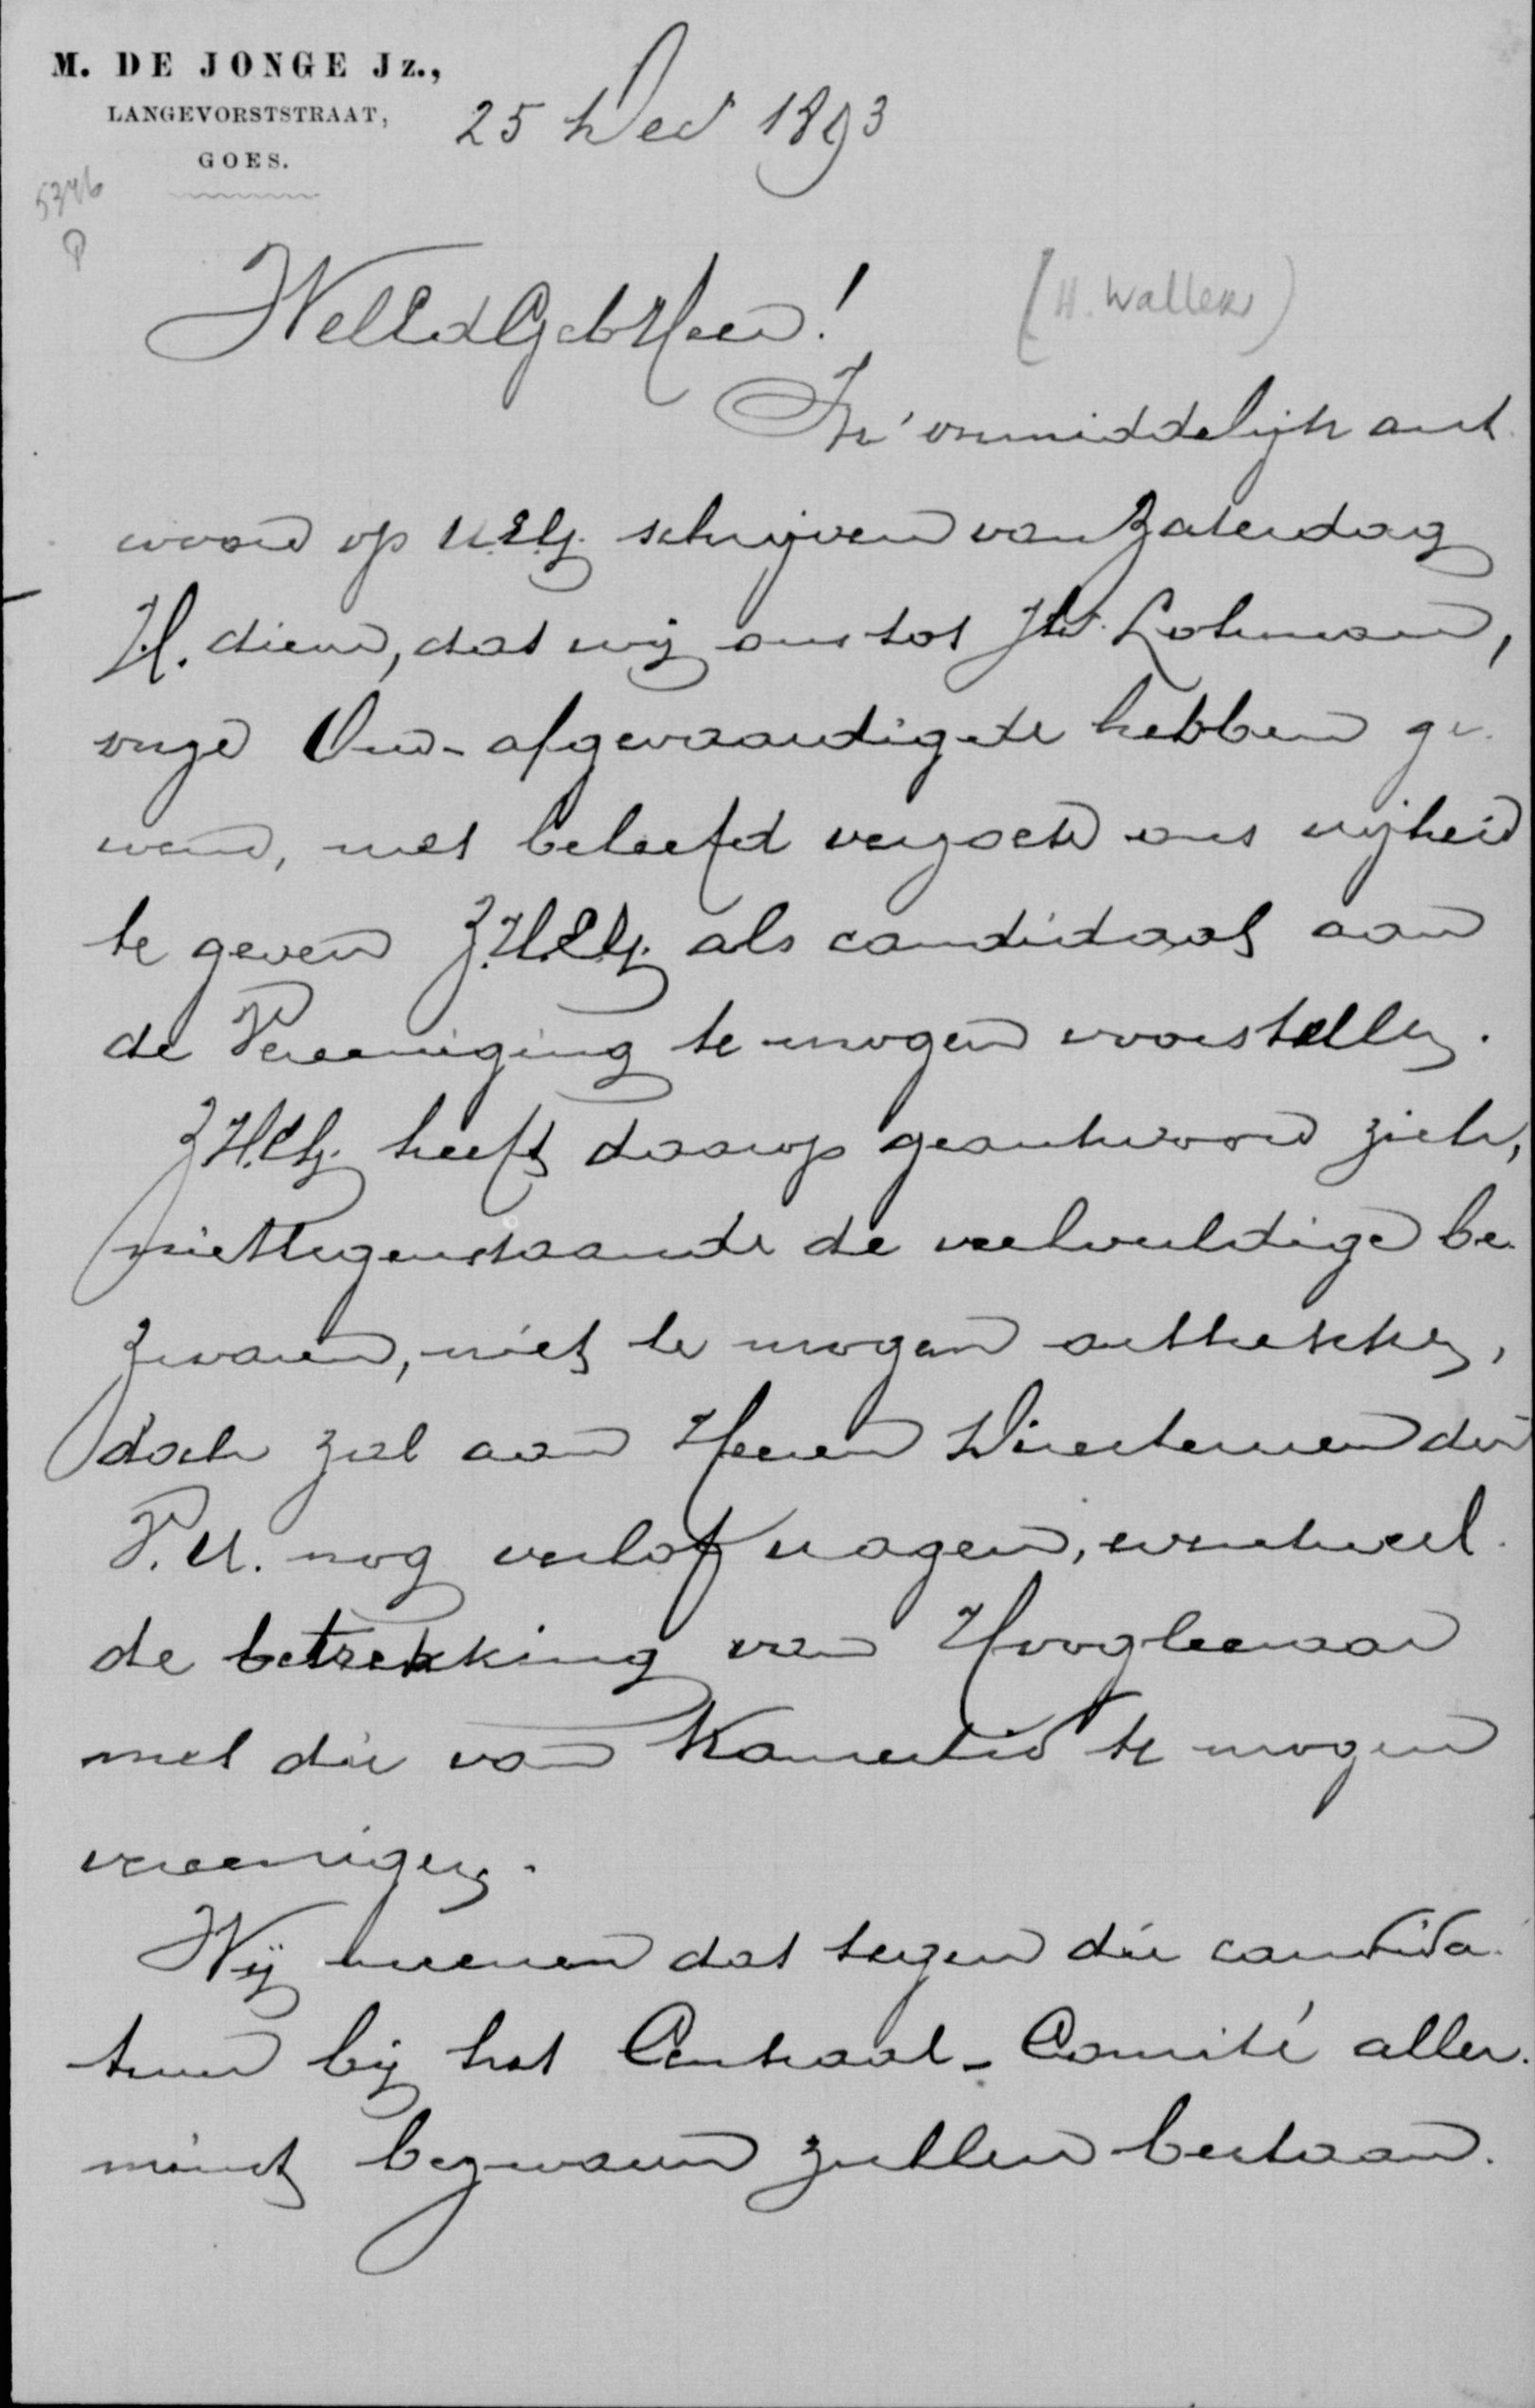 M. DE JONGE Jz.,
LANGEVORSTSTRAAT,
GOES.
25 Dec 1893
5346
WelEdGebHeer!
(H. Wallers)
In onmiddelijk ant
woord op U.E.G. schrijven van Zaterdag
ll. diene, dat wij ons tot Jhr. Lohman,
onze Oud-afgevaardigde hebben ge
wend, met beleefd verzoek ons vrijheid
te geven Z.H.E.G. als candidaat aan
de Vereeniging te mogen voorstellen.
Z.H.E.G. heeft daarop geantwoord zich,
niettegenstaande de veelvuldige be
zwaren, niet te mogen onttrekken,
doch zal aan Heeren Directeuren der
V.U. nog verlof vragen, eventueel
de betrekking van Hoogleeraar
met die van Kamerlid te mogen
vereenigen.
Wij meenen dat tegen die candida
tuur bij het Centraal-Comité aller
minst bezwaren zullen bestaan.